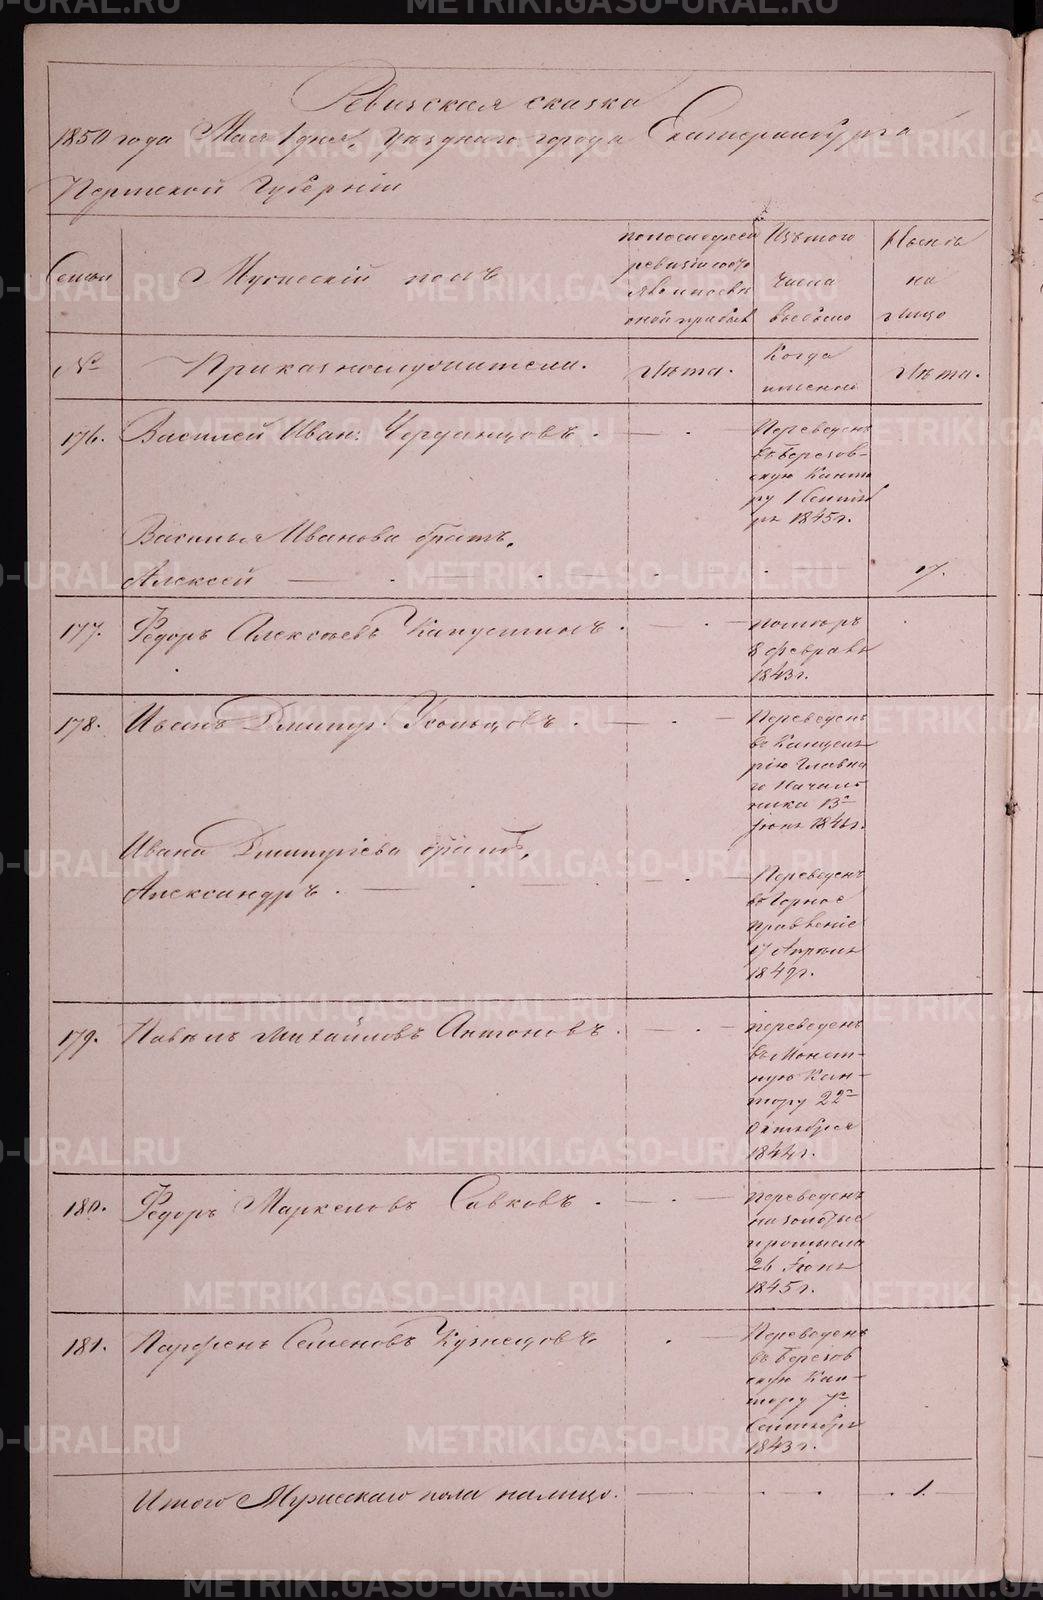 Ревизская сказка
1850 года Мая 1 дня Уездного города Екатеринбурга
Пермской Губернiи
Семьи
Мужескiй полъ
по последней ревизiи состояло и после оной прибыло
Изъ того числа выбыло
Ныне на лицо
№
Приказнослужители.
Лѣта.
Когда именно
Лѣта.
176. Василей Иван: Черданцовъ. — · —
Переведенъ
въ Березов-
скую Канто
ру 1 Сентяб
ря 1845 г.
Василья Иванова братъ,
Алексей — · — · — · — · — 17.
177. Федоръ Алексѣевъ Капустинъ. — · —
помѣръ
8 февраля
1843 г.
178. Иванъ Дмитр. Усольцовъ. — · —
Переведенъ
въ Канцеля
рiю Главна
го Началь
ника 13го
Iюня 1846 г.
Ивана Дмитрiева братъ,
Александръ. — · — · —
Переведенъ
въ Горное
правленiе
17 Апреля
1849 г.
179. Павелъ Михайловъ Антоновъ. — · —
переведенъ
въ Монет-
ную Кан-
тору 22го
Октября
1844 г.
180. Федоръ Маркеловъ Савковъ. — · —
переведенъ
на золотые
промысла
26 Iюня
1845 г.
181. Парфенъ Семеновъ Кузнецовъ · —
Переведенъ
въ Березов
скую Кан-
тору 7го
Сентября
1843 г.
Итого Мужескаго пола налицо. — · — · · 1.
METRIKI.GASO-URAL.RU